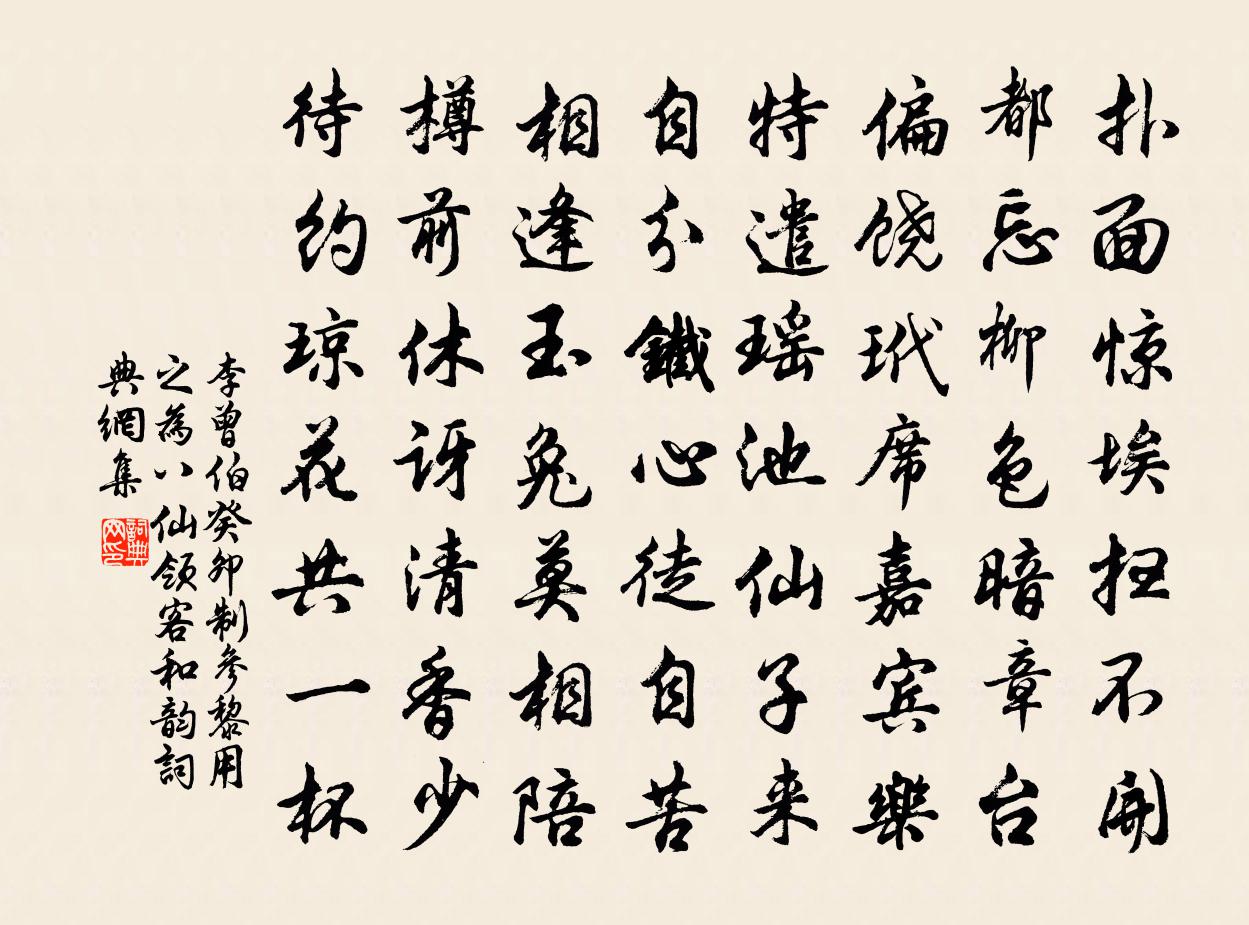 扑面惊埃扫不开
都忘柳色暗章台
偏饶玳席嘉宾樂
特遣瑶池仙子来
自分鐵心徒自苦
相逢玉兔莫相陪
樽前休讶清香少
待约琼花共一杯
李曾伯癸卯制参黎用
之為八仙领客和韵詞
典網集
詞典
网印